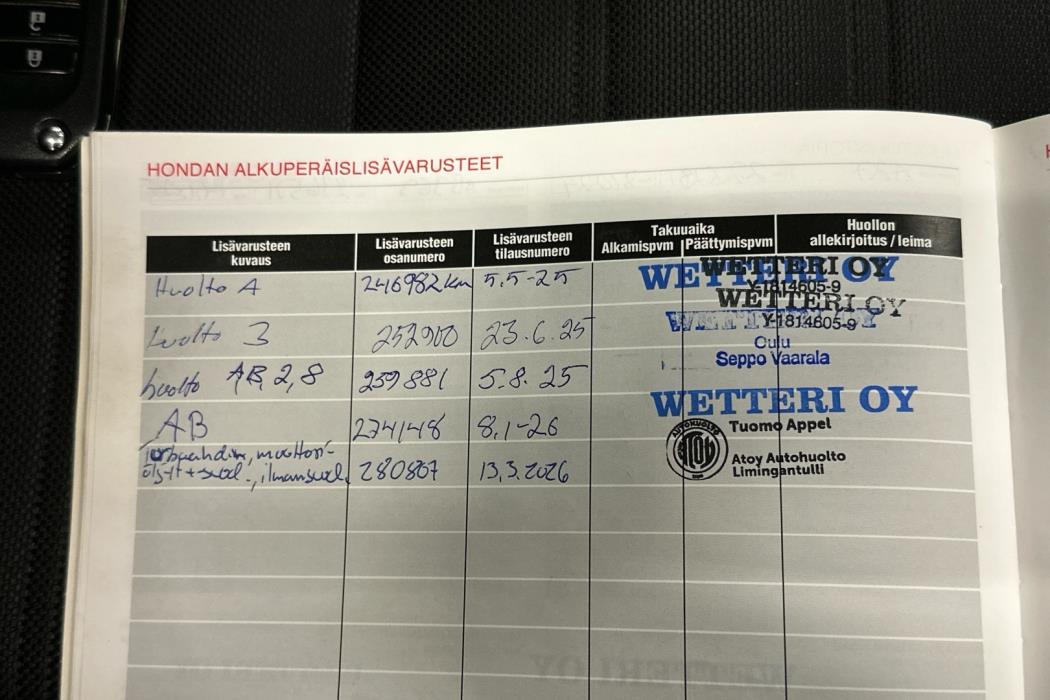 HONDAN ALKUPERÄISLISÄVARUSTEET
Lisävarusteen kuvaus
Lisävarusteen osanumero
Lisävarusteen tilausnumero
Takuuaika
Alkamispvm
Päättymispvm
Huollon allekirjoitus / leima
Huolto A 246982 km 5.5-25
WETTERI OY
WETTERI OY
Y-1814605-9
Huolto 3 252900 23.6.25
WETTERI OY
Y-1814605-9
Oulu
Seppo Vaarala
huolto AB, 2, 8 259881 5.8.25
WETTERI OY
AB 274148 8.1-26
Tuomo Appel
Turboahdin, moottori-
öljyt + suod., ilmansuod. 280867 13.3.2026
AUTOHUOLTO
Atoy Autohuolto
Limingantulli